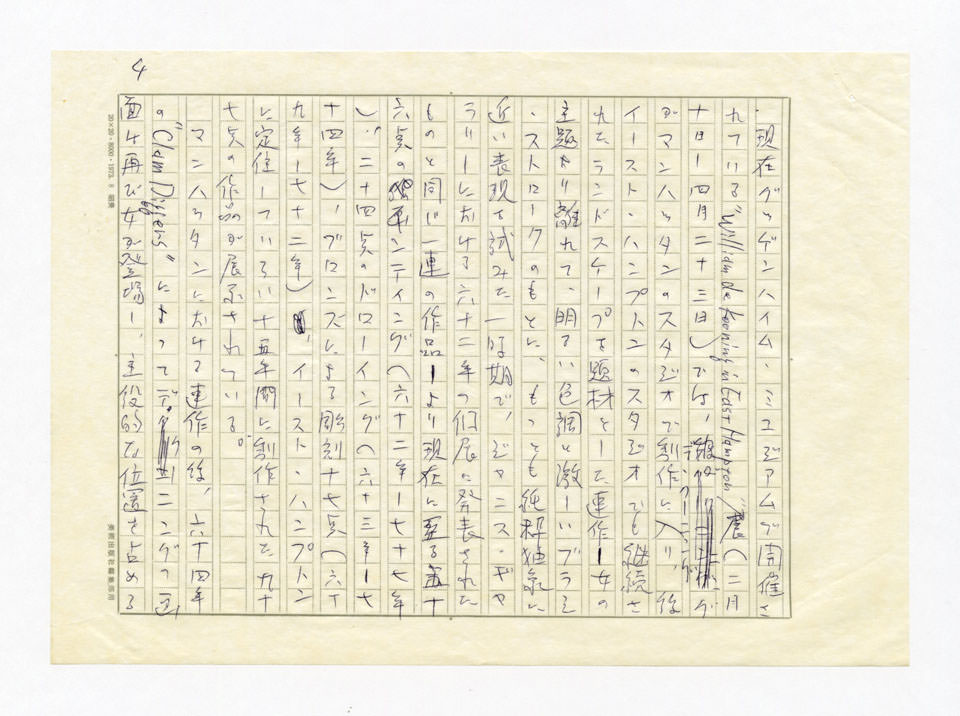 4
現在グッゲンハイム・ミュジアムが開催さ
れている"Willem de Kooning in East Hampton"展(二月
十日―四月二十三日)では、デ・クーニング
がマンハッタンのスタジオで制作に入り、後
イースト・ハンプトンのスタジオでも継続さ
れたランドスケープを題材とした連作―女の
主題から離れて、明るい色調と激しいブラッシュ
・ストロークのもとに、もっとも純粋抽象に
近い表現を試みた一時期で、ジャニス・ギャ
ラリーにおける六十二年の個展に発表された
ものと同じ一連の作品―より現在に至る五十
六点のペインティング(六十二年―七十七年
)、二十四点のドローイング(六十三年―七
十四年)、ブロンズによる彫刻十七点(六十
九年―七十二年)、イースト・ハンプトン
に定住している十五年間に制作された九十
七点の作品が展示されている。
マンハッタンにおける連作の後、六十四年
の"Clam Diggers"によってデ・クーニングの画
面に再び女が登場し、主役的な位置を占める
20×20・8000・1973.